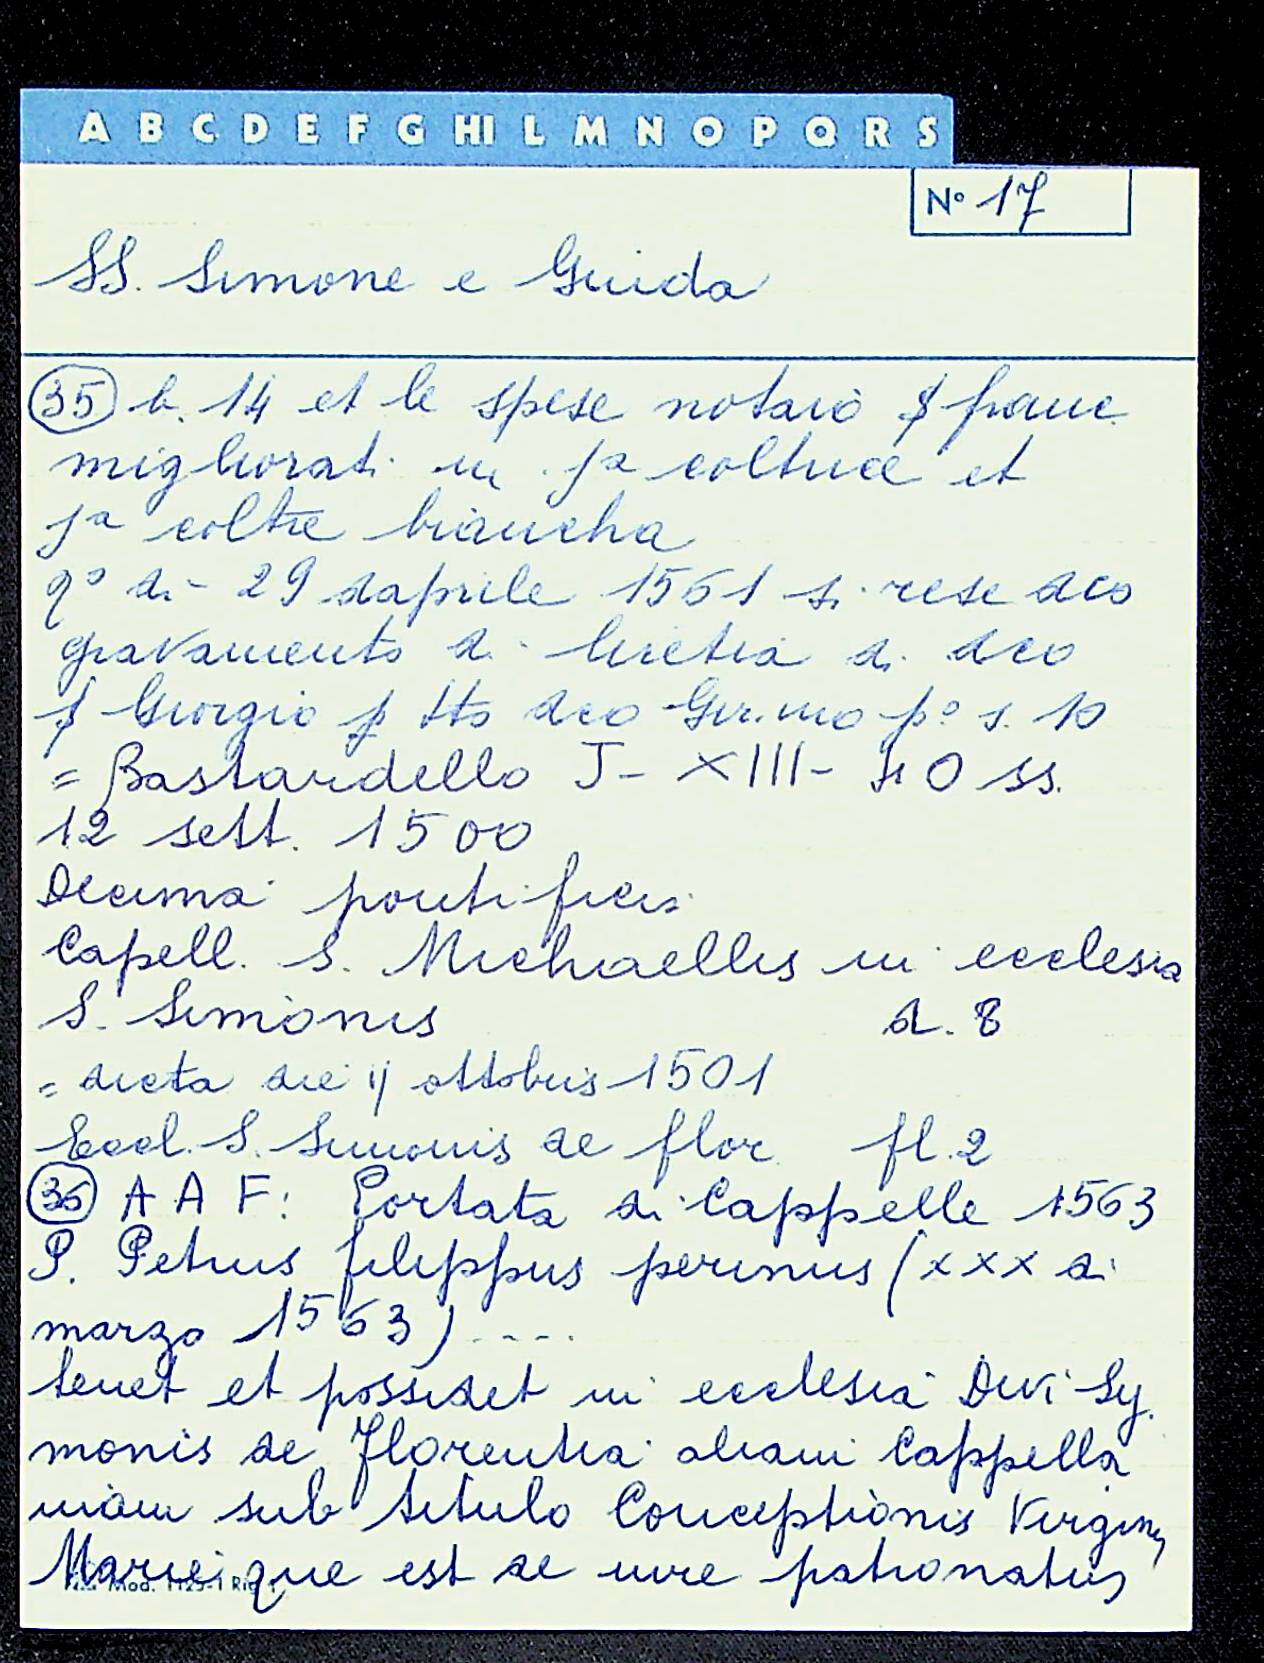 A B C D E F G HI L M N O P Q R S
N° 17
SS. Simone e Giuda
35 b. 14 et le spese notaio franc
migliorati in ja coltrice et
ja coltre biancha
qo di - 29 daprile 1561 si rese dco
gravamento di lucretia di dco
Giorgio p tto dco Gir.mo po s. 10
= Bastardello J - XIII - 40 ss.
12 sett. 1500
Decima pontificis
Capell. S. Michaellis in ecclesia
S. Simonis d. 8
= dicta die ij ottobris 1501
Eccl. S. Simonis de flor fl. 2
36 A A F: Portata di Cappelle 1563
P. Petrus filippus perinus (xxx di
marzo 1563) ....
tenet et possidet in ecclesia Divi Sy
monis de Florentia aliam Cappella
niam sub titulo Conceptionis Virginis
Marie que est de iure patronatus
Mod. 1125-1